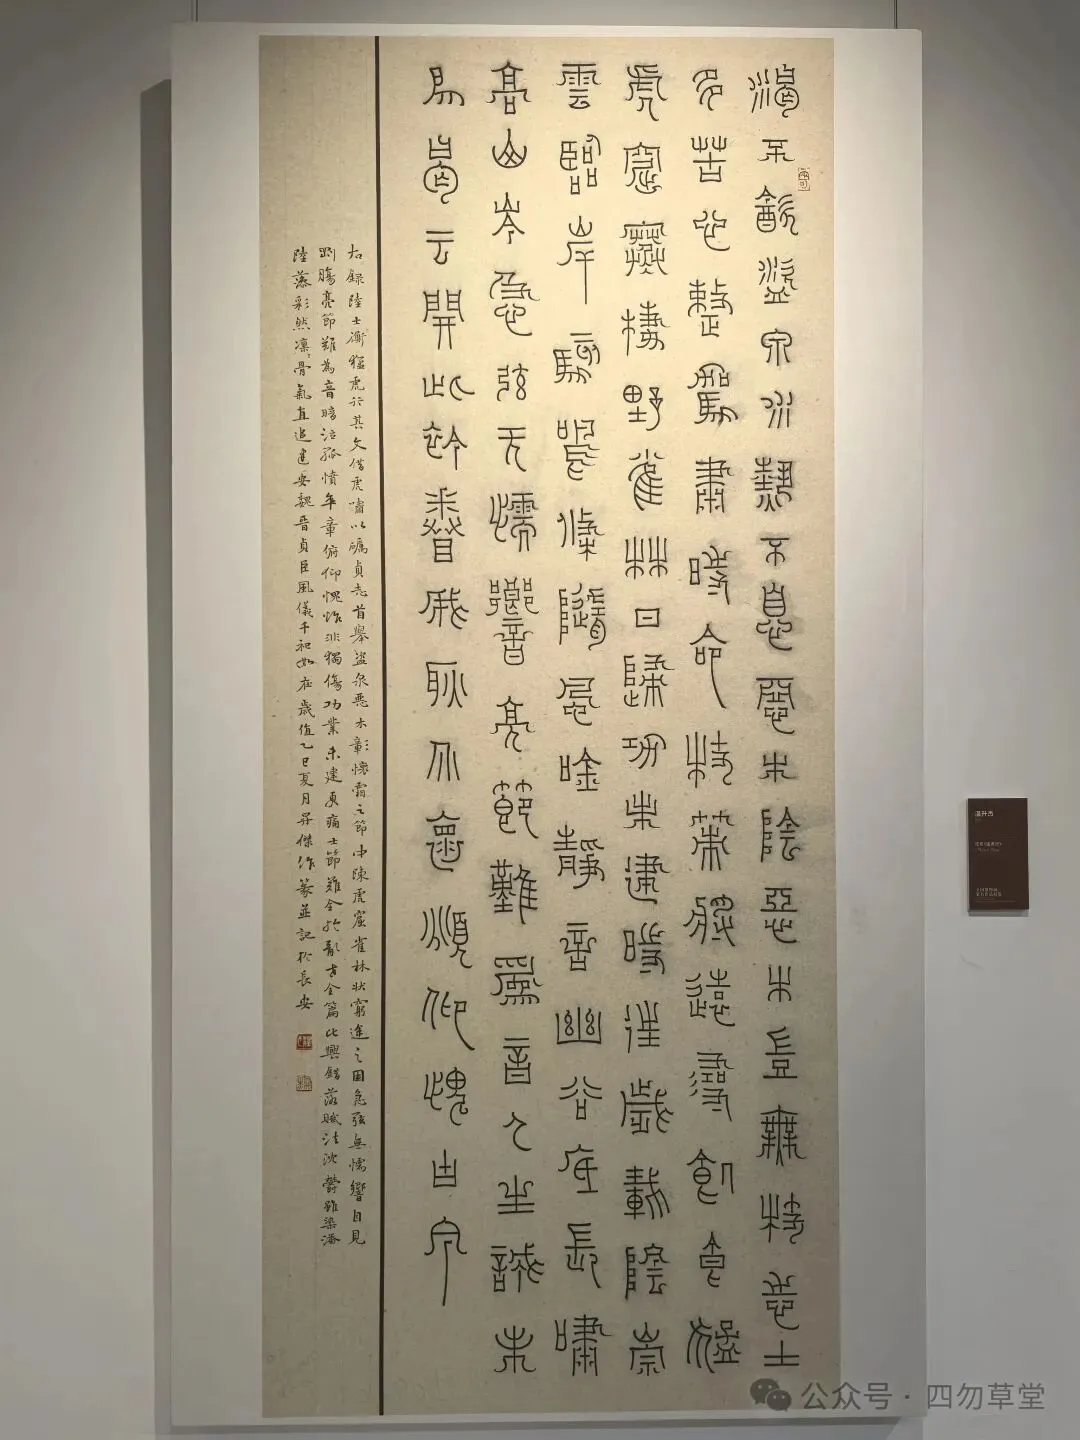 渴不飲盜泉水熱不息惡木陰惡木豈無枝志士
多苦心整駕肅時命杖策將遠尋飢食猛
虎窟寒棲野雀林日歸功未建時往歲載陰崇
雲臨岸駭鳴條隨風吟靜言幽谷底長嘯
高山岑急弦无懦響亮節難為音人生誠未
易曷云開此衿眷我耿介懷俯仰愧古今
右錄陸士衡猛虎行其文借虎嘯以礪貞志首舉盜泉惡木彰懷霜之節中陳虎窟雀林狀窮途之困急弦無懦響自見
剛腸亮節難為音暗注孤憤卒章俯仰愧怍非獨傷功業未建更痛士節難全於亂世全篇比興錯落賦法沈鬱雖染潘
陸藻彩然凜凜骨氣直追建安魏晉貞臣風儀千祀如在歲值乙巳夏月昇傑作篆並記於長安
温升杰
公众号·四勿草堂